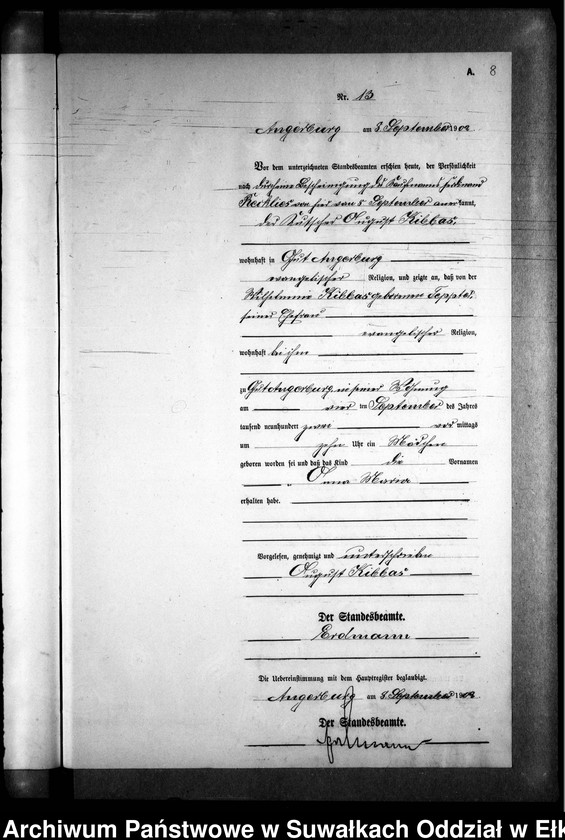 A. 8
Nr. 13
Angerburg am 8 September 1902
Vor dem unterzeichneten Standesbeamten erschien heute, der Persönlichkeit
nach durch eine Bescheinigung des Kaufmanns Ferdinand
von hier vom 8 September anerkannt,
der Kutscher August Kibbas,
wohnhaft in Gut Angerburg
evangelischer Religion, und zeigte an, daß von der
Wilhelmine Kibbas geborener
seiner Ehefrau
evangelischer Religion,
wohnhaft bei ihm
zu Gut Angerburg in seiner Wohnung
am vier ten September des Jahres
tausend neunhundert zwei vor mittags
um zehn Uhr ein Mädchen
geboren worden sei und daß das Kind die Vornamen
Anna Maria
erhalten habe.
Vorgelesen, genehmigt und unterschrieben
August Kibbas
Der Standesbeamte.
Erdmann
Die Uebereinstimmung mit dem Hauptregister beglaubigt.
Angerburg am 8 September 1902
Der Standesbeamte.
Erdmann
Archiwum Państwowe w Suwałkach Oddział w Ełk